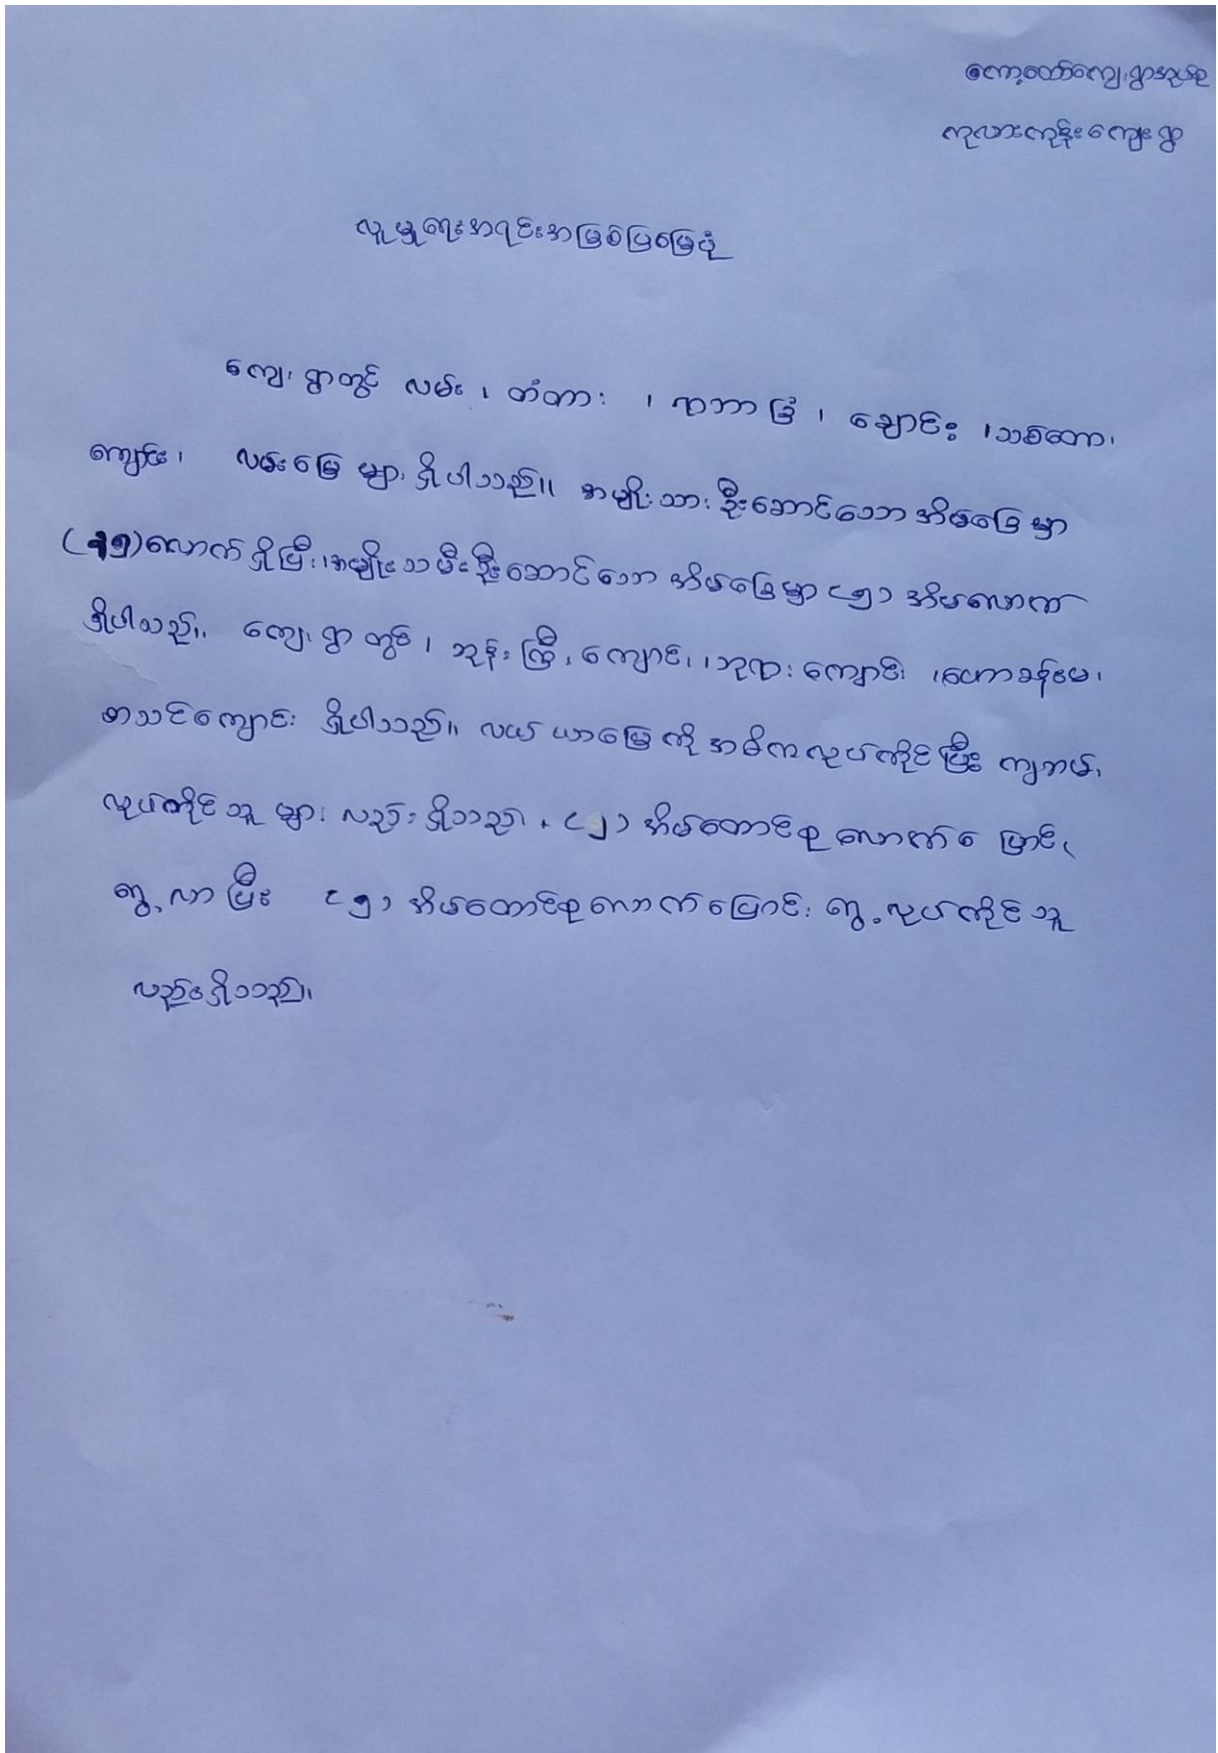 ကော့ဟော်ကျေးရွာအုပ်စု
ကုလားကုန်းကျေးရွာ
လူမှုရေးအရင်းအမြစ်ပြမြေပုံ
ကျေးရွာတွင် လမ်း ၊ တံတား ၊ ရာဘာခြံ ၊ ချောင်း ၊ သစ်တော၊
ကျောင်း၊ လမ်းမြေ များ ရှိပါသည်။ အမျိုးသား ဦးဆောင်သော အိမ်ခြေမှာ
လောက် ရှိပြီး ၊ အမျိုးသမီး ဦးဆောင်သော အိမ်ခြေမှာ (၅) အိမ်လောက်
ရှိပါသည်။ ကျေးရွာ တွင် ၊ ဘုန်းကြီး ကျောင်း၊ ဘုရားကျောင်း ၊
စာသင်ကျောင်း ရှိပါသည်။ လယ်ယာမြေကို အဓိကလုပ်ကိုင်ပြီး ကျဘမ်း
လုပ်ကိုင်သူ များ လည်း ရှိသည် ။ (၂) အိမ်ထောင်စု လောက် ပြောင်း
ရွှေ့လာပြီး (၅) အိမ်ထောင်စုလောက် ပြောင်း ရွှေ့လုပ်ကိုင်သူ
လည်း ရှိသည်။